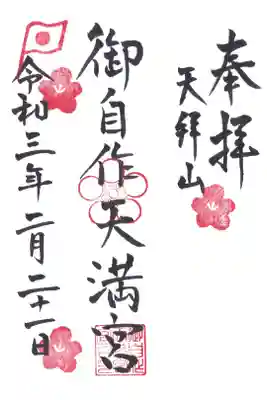 奉拝
天拝山
御自作天満宮
令和三年二月二十一日